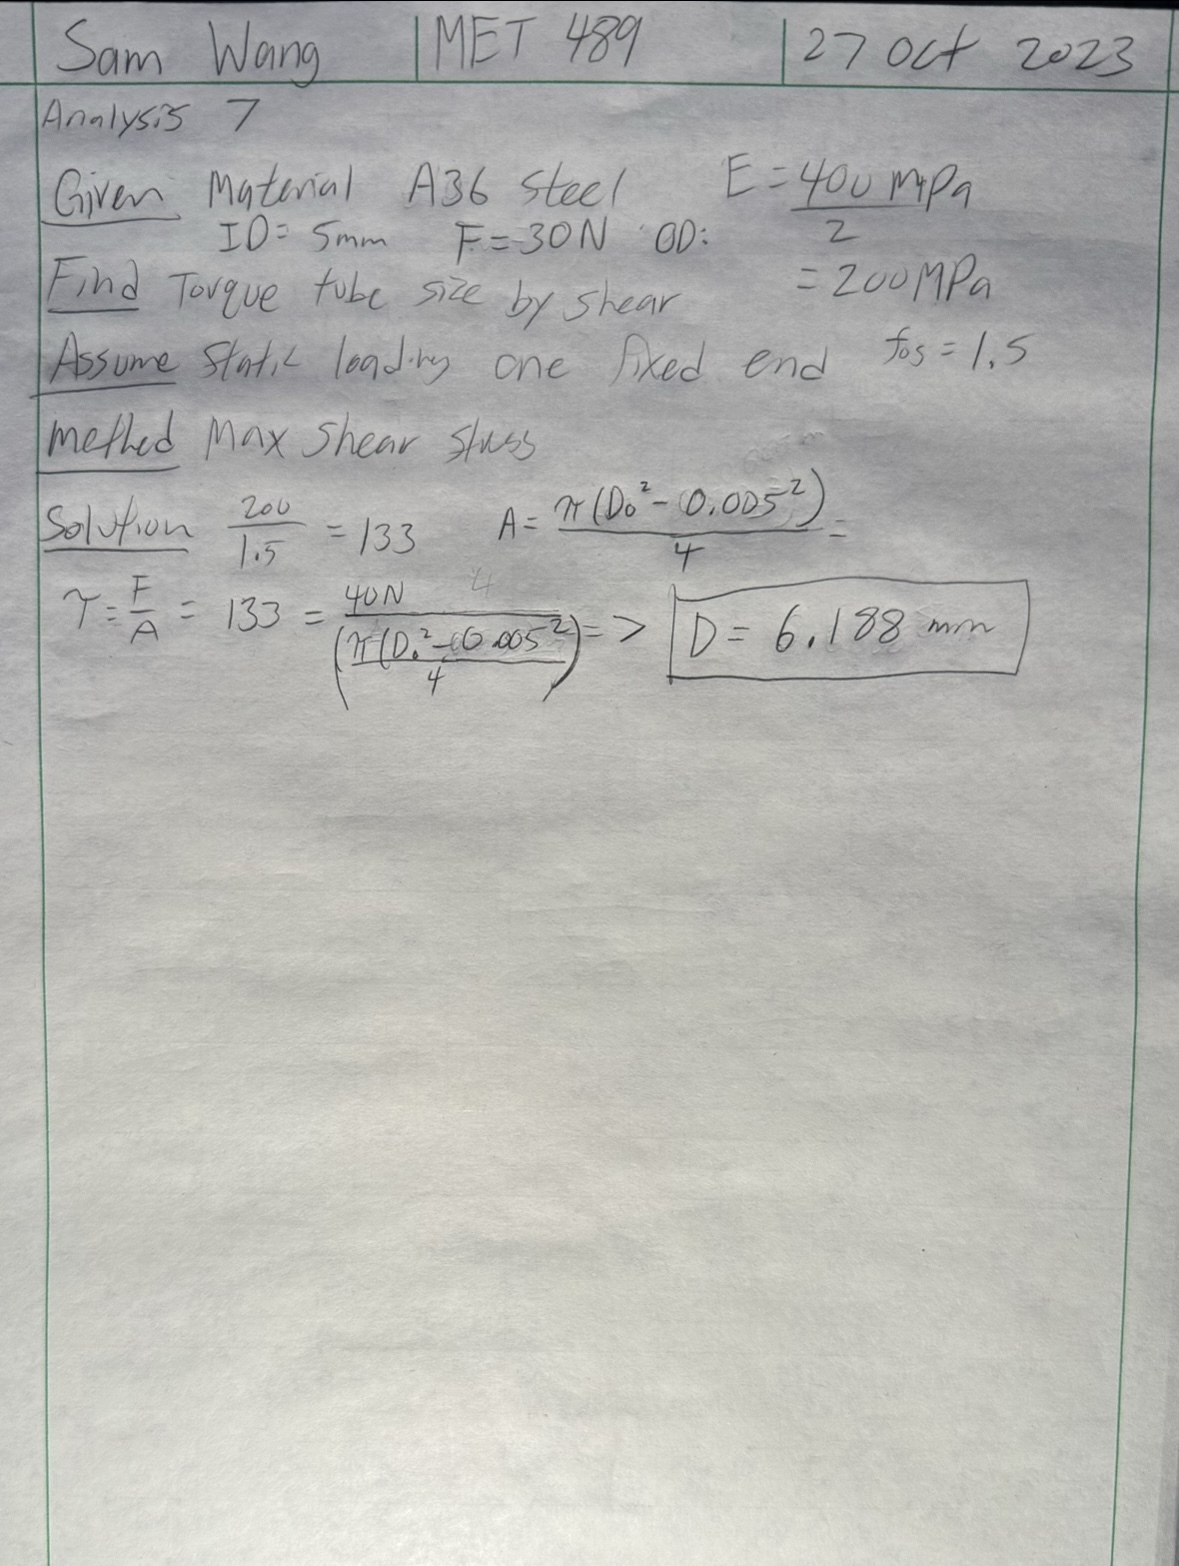 Sam Wang | MET 489 | 27 Oct 2023
Analysis 7
Given Material A36 Steel E = 400 MPa / 2
ID = 5mm F = 30N OD:
= 200 MPa
Find Torque tube size by shear
Assume Static loading one fixed end fos = 1.5
Method Max Shear Stress
Solution 200 / 1.5 = 133 A = π(Do² - (0.005²) / 4 =
τ = F / A = 133 = 40N / (π(Do² - (0.005²) / 4) => D = 6.188 mm